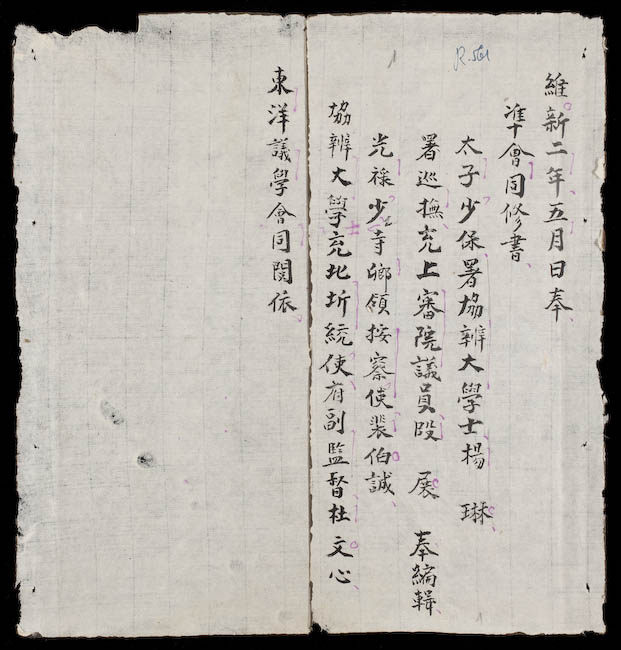 R.561
1
維新二年五月日奉
准會同修書
太子少保署協辦大學士楊 琳
署巡撫充上審院議員段 展 奉編輯
光祿少寺鄉領按察使裴伯誠
協辦大學充北圻統使府副監督杜文心
東洋議學會同閱依
1